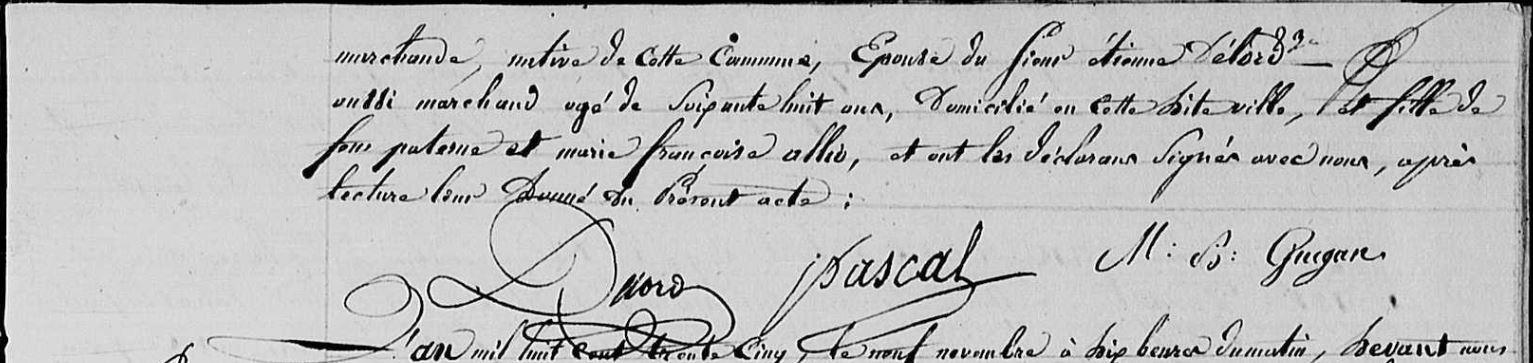 marchande, native de cette Commune, Epouse du sieur étienne Délord
aussi marchand agé de soixante huit ans, Domicilié en cette dite ville, et fille de
feu paterne et marie françoise allio, et ont les déclarans signés avec nous, après
lecture leur Donné du Présent acte :
Pascal M: B: Guegan
L'an mil huit cent trente Cinq, le neuf novembre à dix heures du matin, devant nous